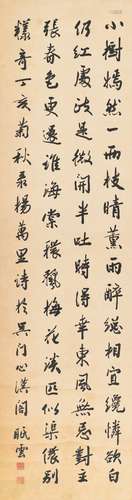 小樹嫣然一兩枝晴薰雨醉總相宜纔憐欲白
仍紅處政是微開半吐時得幸東風無忌對主
張春色更還誰海棠穠麗梅花淡匹似渠儂別
樣奇丁亥菊秋录楊萬里詩於吳門心漢閣眠雲